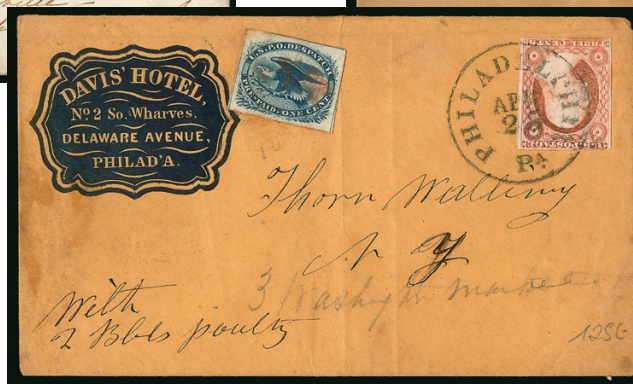 DAVIS' HOTEL,
No. 2 So. Wharves.
DELAWARE AVENUE,
PHILAD'A.
U.S.P.O. DESPATCH
PRE-PAID. ONE CENT
PHILADELPHIA
Pa
Thorn
N Y
3 Washington Market
With
2 Bbls poultry